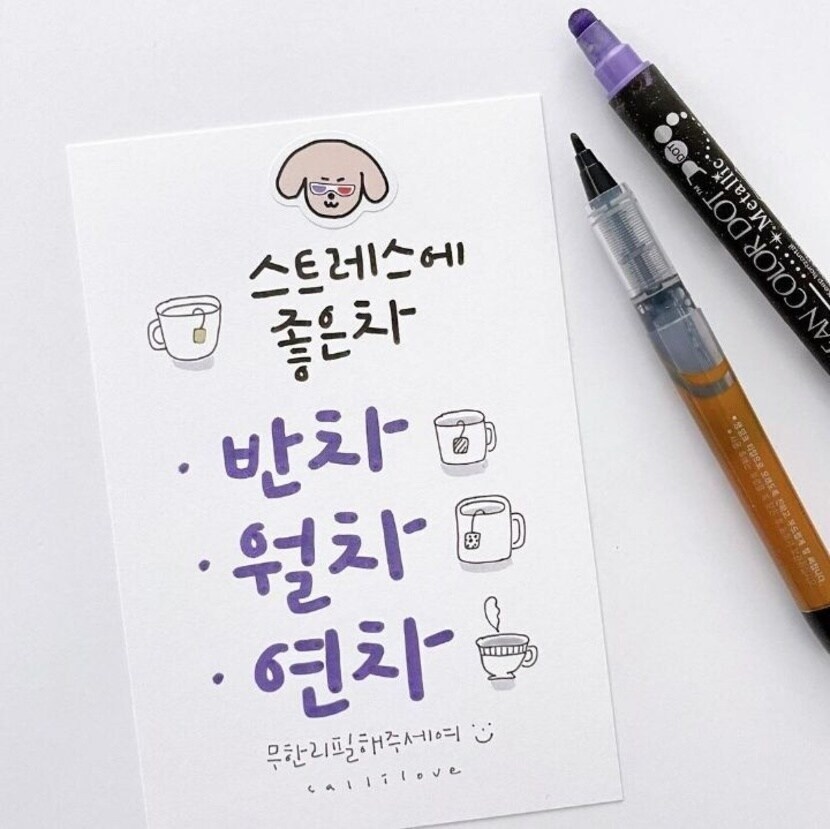 스트레스에
좋은차
· 반차
· 월차
· 연차
무한리필해주세여
callilove
DOT
AN COLOR DOT™
Metallic